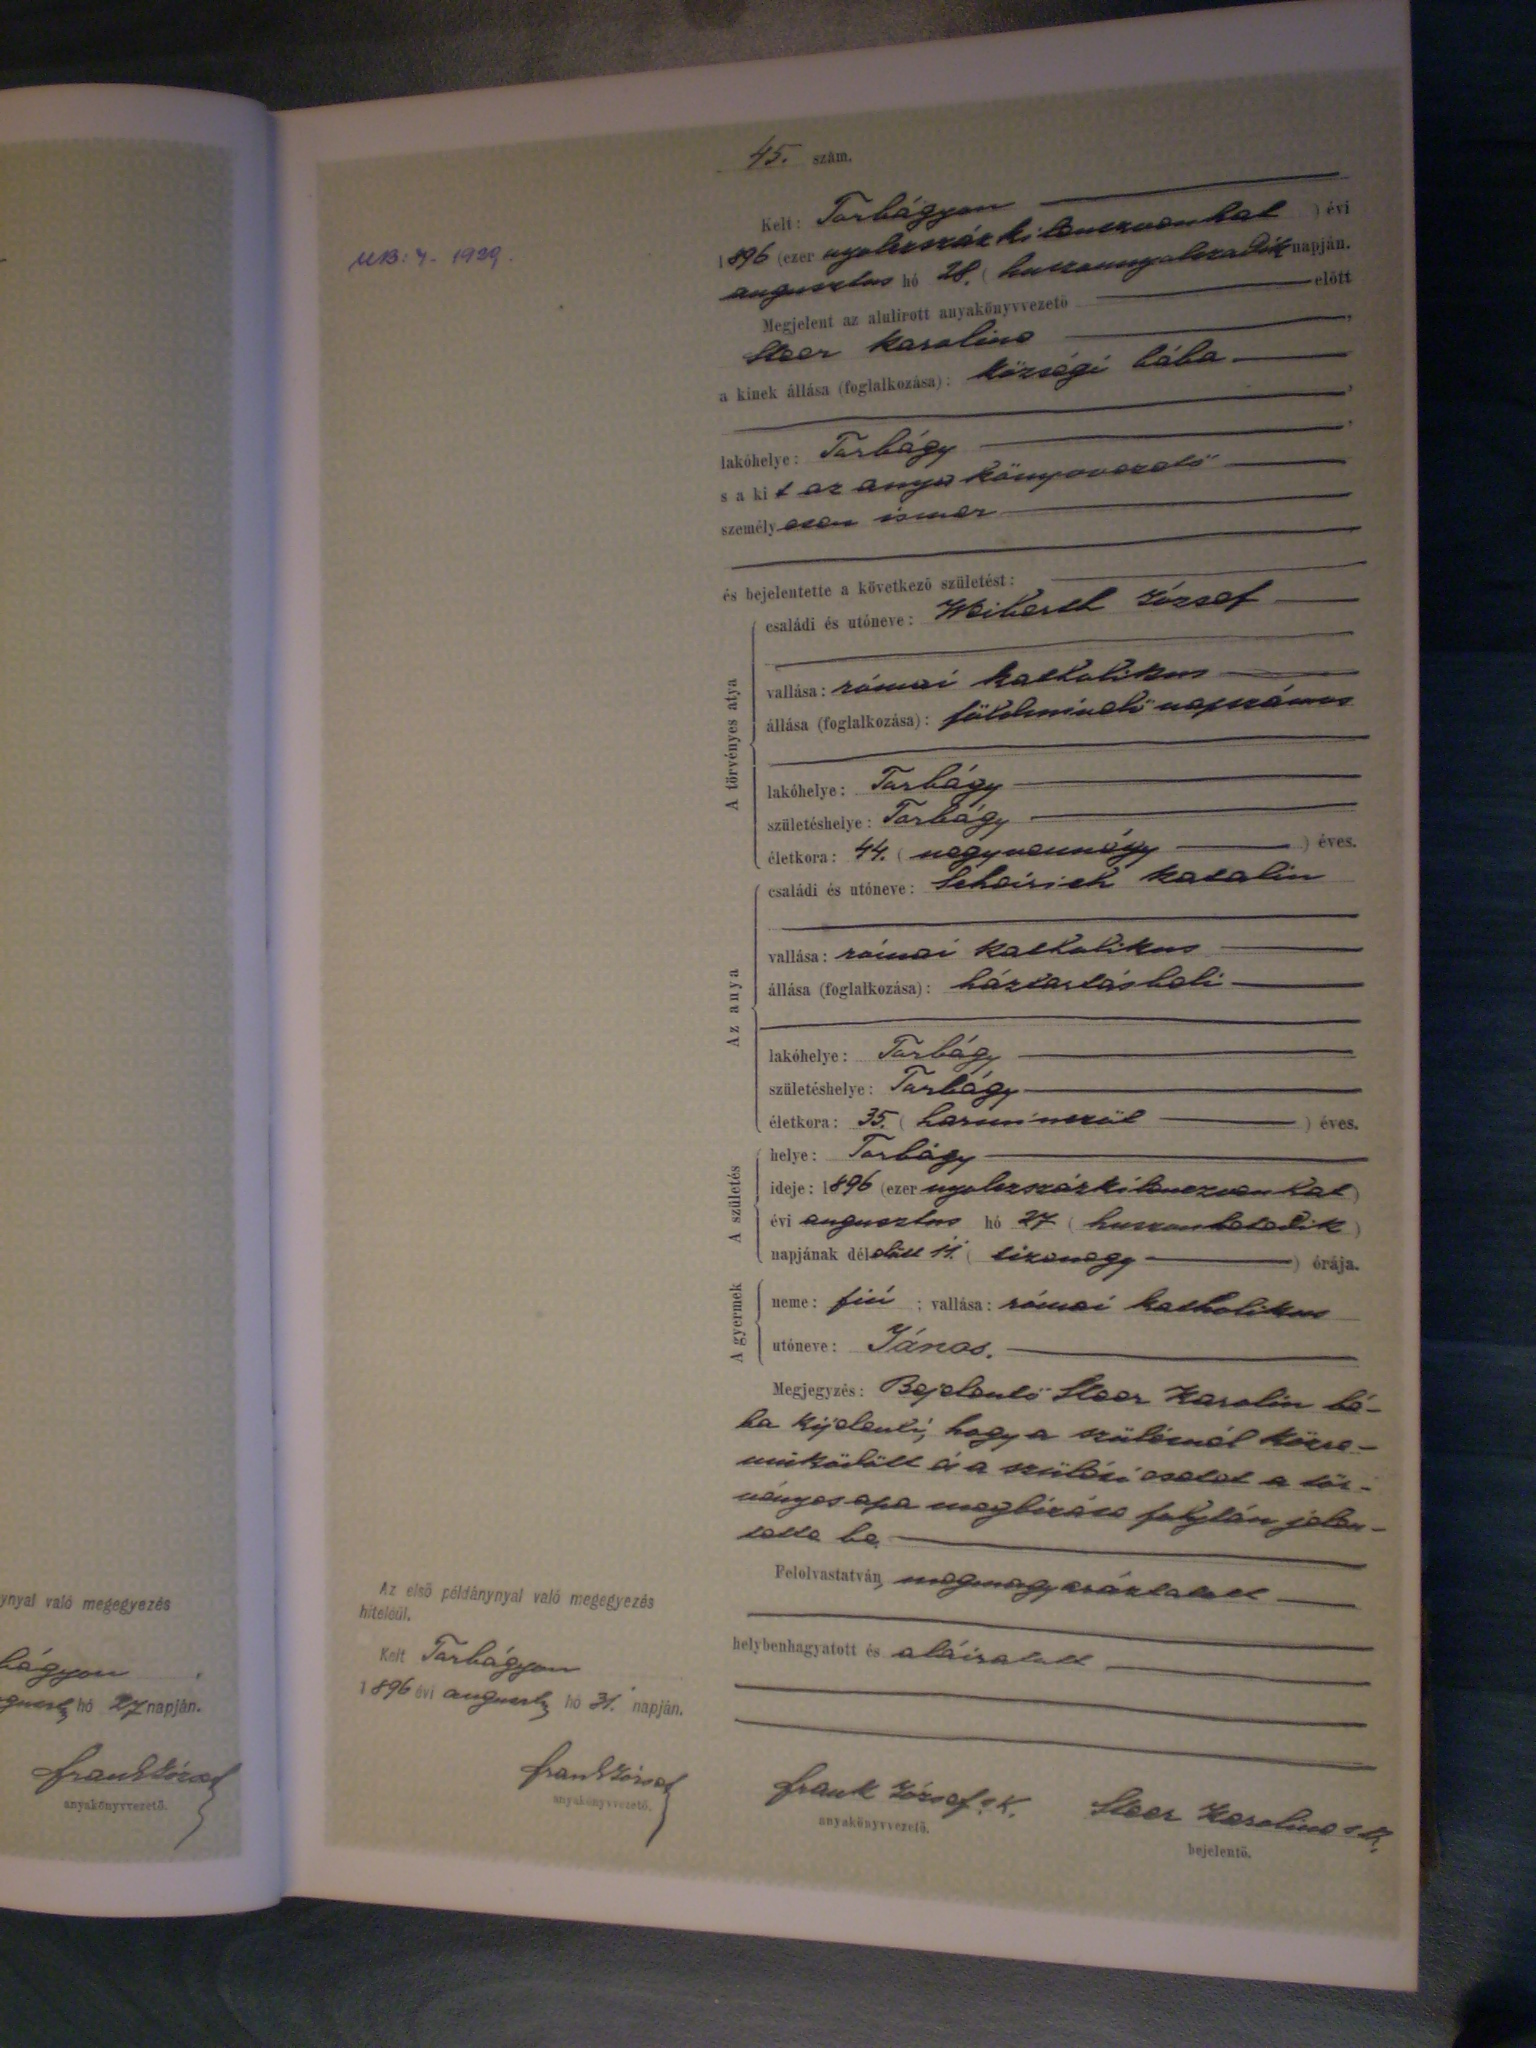 45. szám.
Kelt: Torbágyon
1896 (ezer nyolczszázkilenczvenhat) évi
augusztus hó 28. (huszonnyolczadik napján.
Megjelent az alulirott anyakönyvvezető előtt
Steer Karolina,
a kinek állása (foglalkozása): községi bába
lakóhelye: Torbágy,
s a kit az anyakönyvvezető
személyesen ismer
és bejelentette a következő születést:
A törvényes atya
családi és utóneve: József
vallása: római katholikus
állása (foglalkozása): földmívelő napszámos
lakóhelye: Torbágy
születéshelye: Torbágy
életkora: 44. (negyvennégy) éves.
Az anya
családi és utóneve: Katalin
vallása: római katholikus
állása (foglalkozása): háztartásbeli
lakóhelye: Torbágy
születéshelye: Torbágy
életkora: 35. (harminczöt) éves.
A születés
helye: Torbágy
ideje: 1896 (ezer nyolczszázkilenczvenhat)
évi augusztus hó 27 (huszonhetedik)
napjának délelőtt 11. (tizenegy) órája.
A gyermek
neme: fiú; vallása: római katholikus
utóneve: János.
Megjegyzés: Bejelentő Steer Karolin bá-
ba kijelenti, hogy a szülésnél közre-
működött és a szülési esetet a tör-
vényes apa megbízása folytán jelen-
tette be.
Felolvastatván, megmagyaráztatott
helybenhagyatott és aláiratott
Frank József s. k.
anyakönyvvezető.
Steer Karolina s. k.
bejelentő.
1929.
Az első példánynyal való megegyezés
hiteléül.
Kelt Torbágyon
1896 évi auguszt. hó 31. napján.
Frank József
anyakönyvvezető.
ynyal való megegyezés
bágyon
hó 27 napján.
Frank József
anyakönyvvezető.